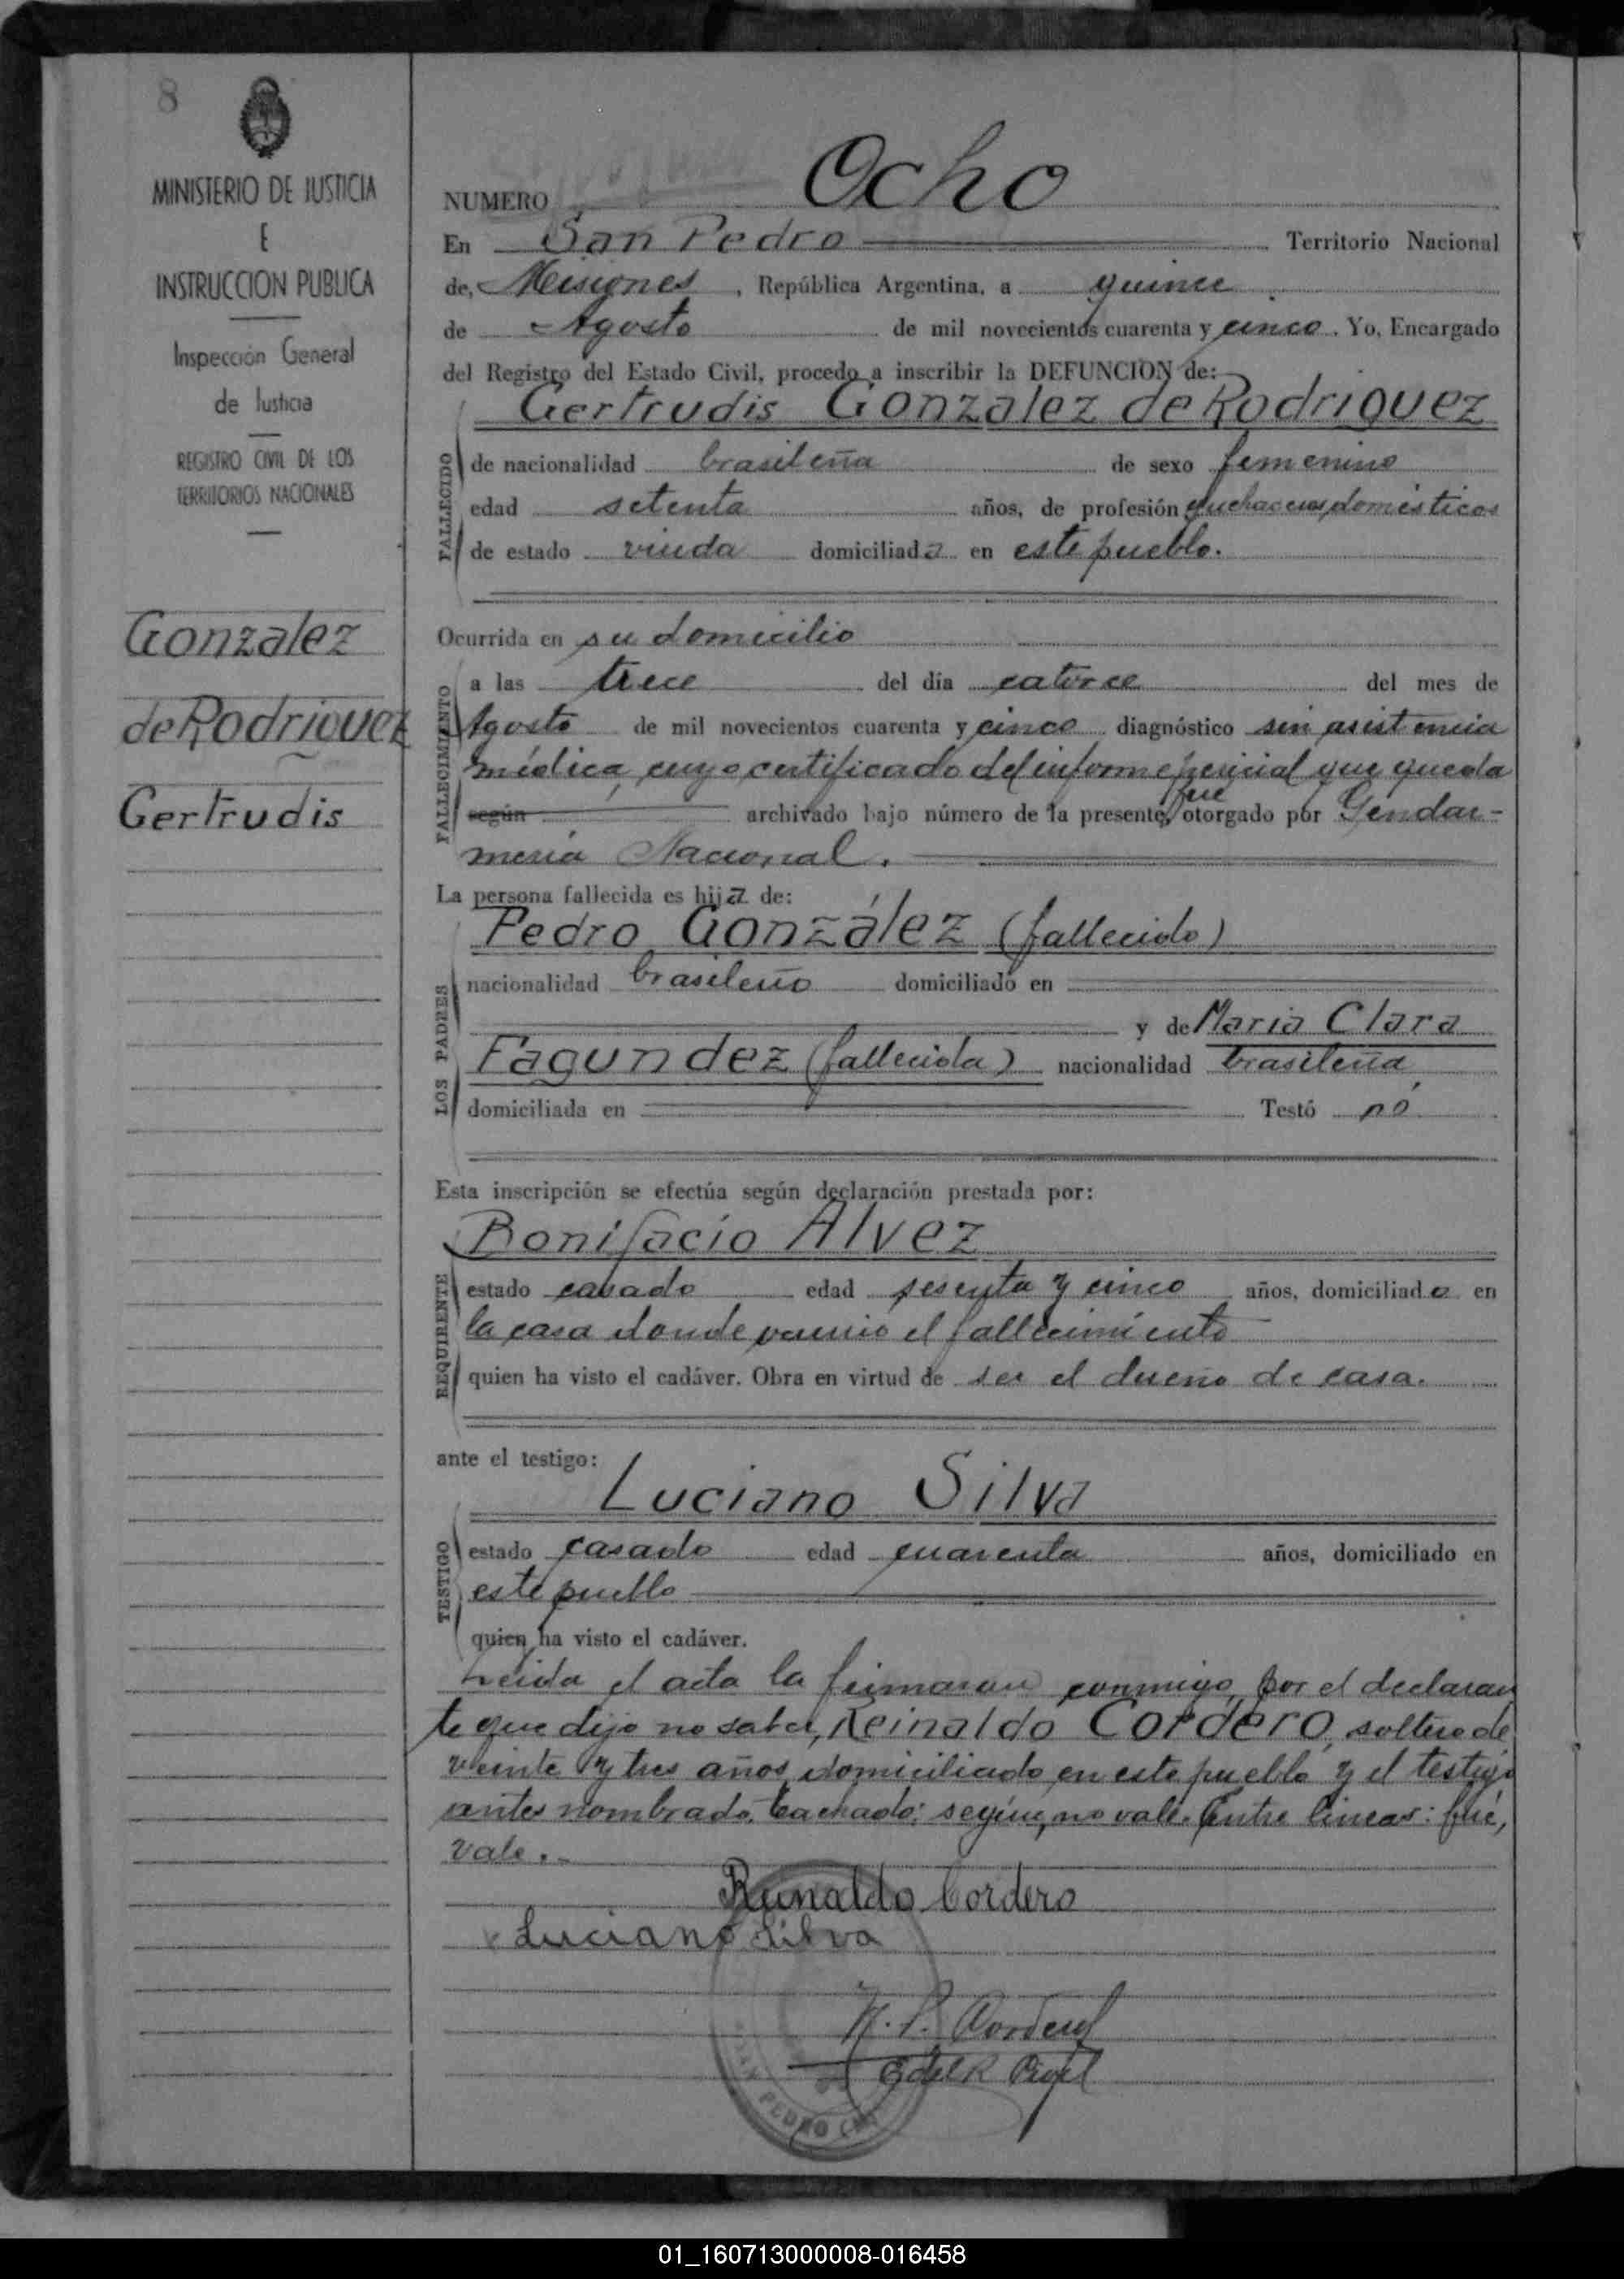 8
MINISTERIO DE JUSTICIA
E
INSTRUCCION PUBLICA
Inspección General
de Justicia
REGISTRO CIVIL DE LOS
TERRITORIOS NACIONALES
Gonzalez
de Rodriguez
Gertrudis
NUMERO Ocho
En San Pedro Territorio Nacional
de, Misiones, República Argentina, a quince
de Agosto de mil novecientos cuarenta y cinco. Yo, Encargado
del Registro del Estado Civil, procedo a inscribir la DEFUNCION de:
Gertrudis Gonzalez de Rodriguez
FALLECIDO
de nacionalidad brasileña de sexo femenino
edad setenta años, de profesión quehaceres domésticos
de estado viuda domiciliada en este pueblo.
Ocurrida en su domicilio
FALLECIMIENTO
a las trece del día catorce del mes de
Agosto de mil novecientos cuarenta y cinco diagnóstico sin asistencia
médica, cuyo certificado del informe pericial que queda
según archivado bajo número de la presente, fue otorgado por Gendar-
mería Nacional.
La persona fallecida es hija de:
LOS PADRES
Pedro González (fallecido)
nacionalidad brasileño domiciliado en
y de Maria Clara
Fagundez (fallecida) nacionalidad brasileña
domiciliada en Testó nó
Esta inscripción se efectúa según declaración prestada por:
REQUIRENTE
Bonifacio Alvez
estado casado edad sesenta y cinco años, domiciliado en
la casa donde ocurrió el fallecimiento
quien ha visto el cadáver. Obra en virtud de ser el dueño de casa.
ante el testigo:
TESTIGO
Luciano Silva
estado casado edad cuarenta años, domiciliado en
este pueblo
quien ha visto el cadáver.
Leida el acta la firmaron conmigo, por el declaran
te que dijo no saber, Reinaldo Cordero, soltero de
veinte y tres años, domiciliado en este pueblo y el testigo
antes nombrado. tachado: según, no vale. Entre lineas: fué,
vale.-
Reinaldo Cordero
Luciano Silva
SAN PEDRO
01_160713000008-016458